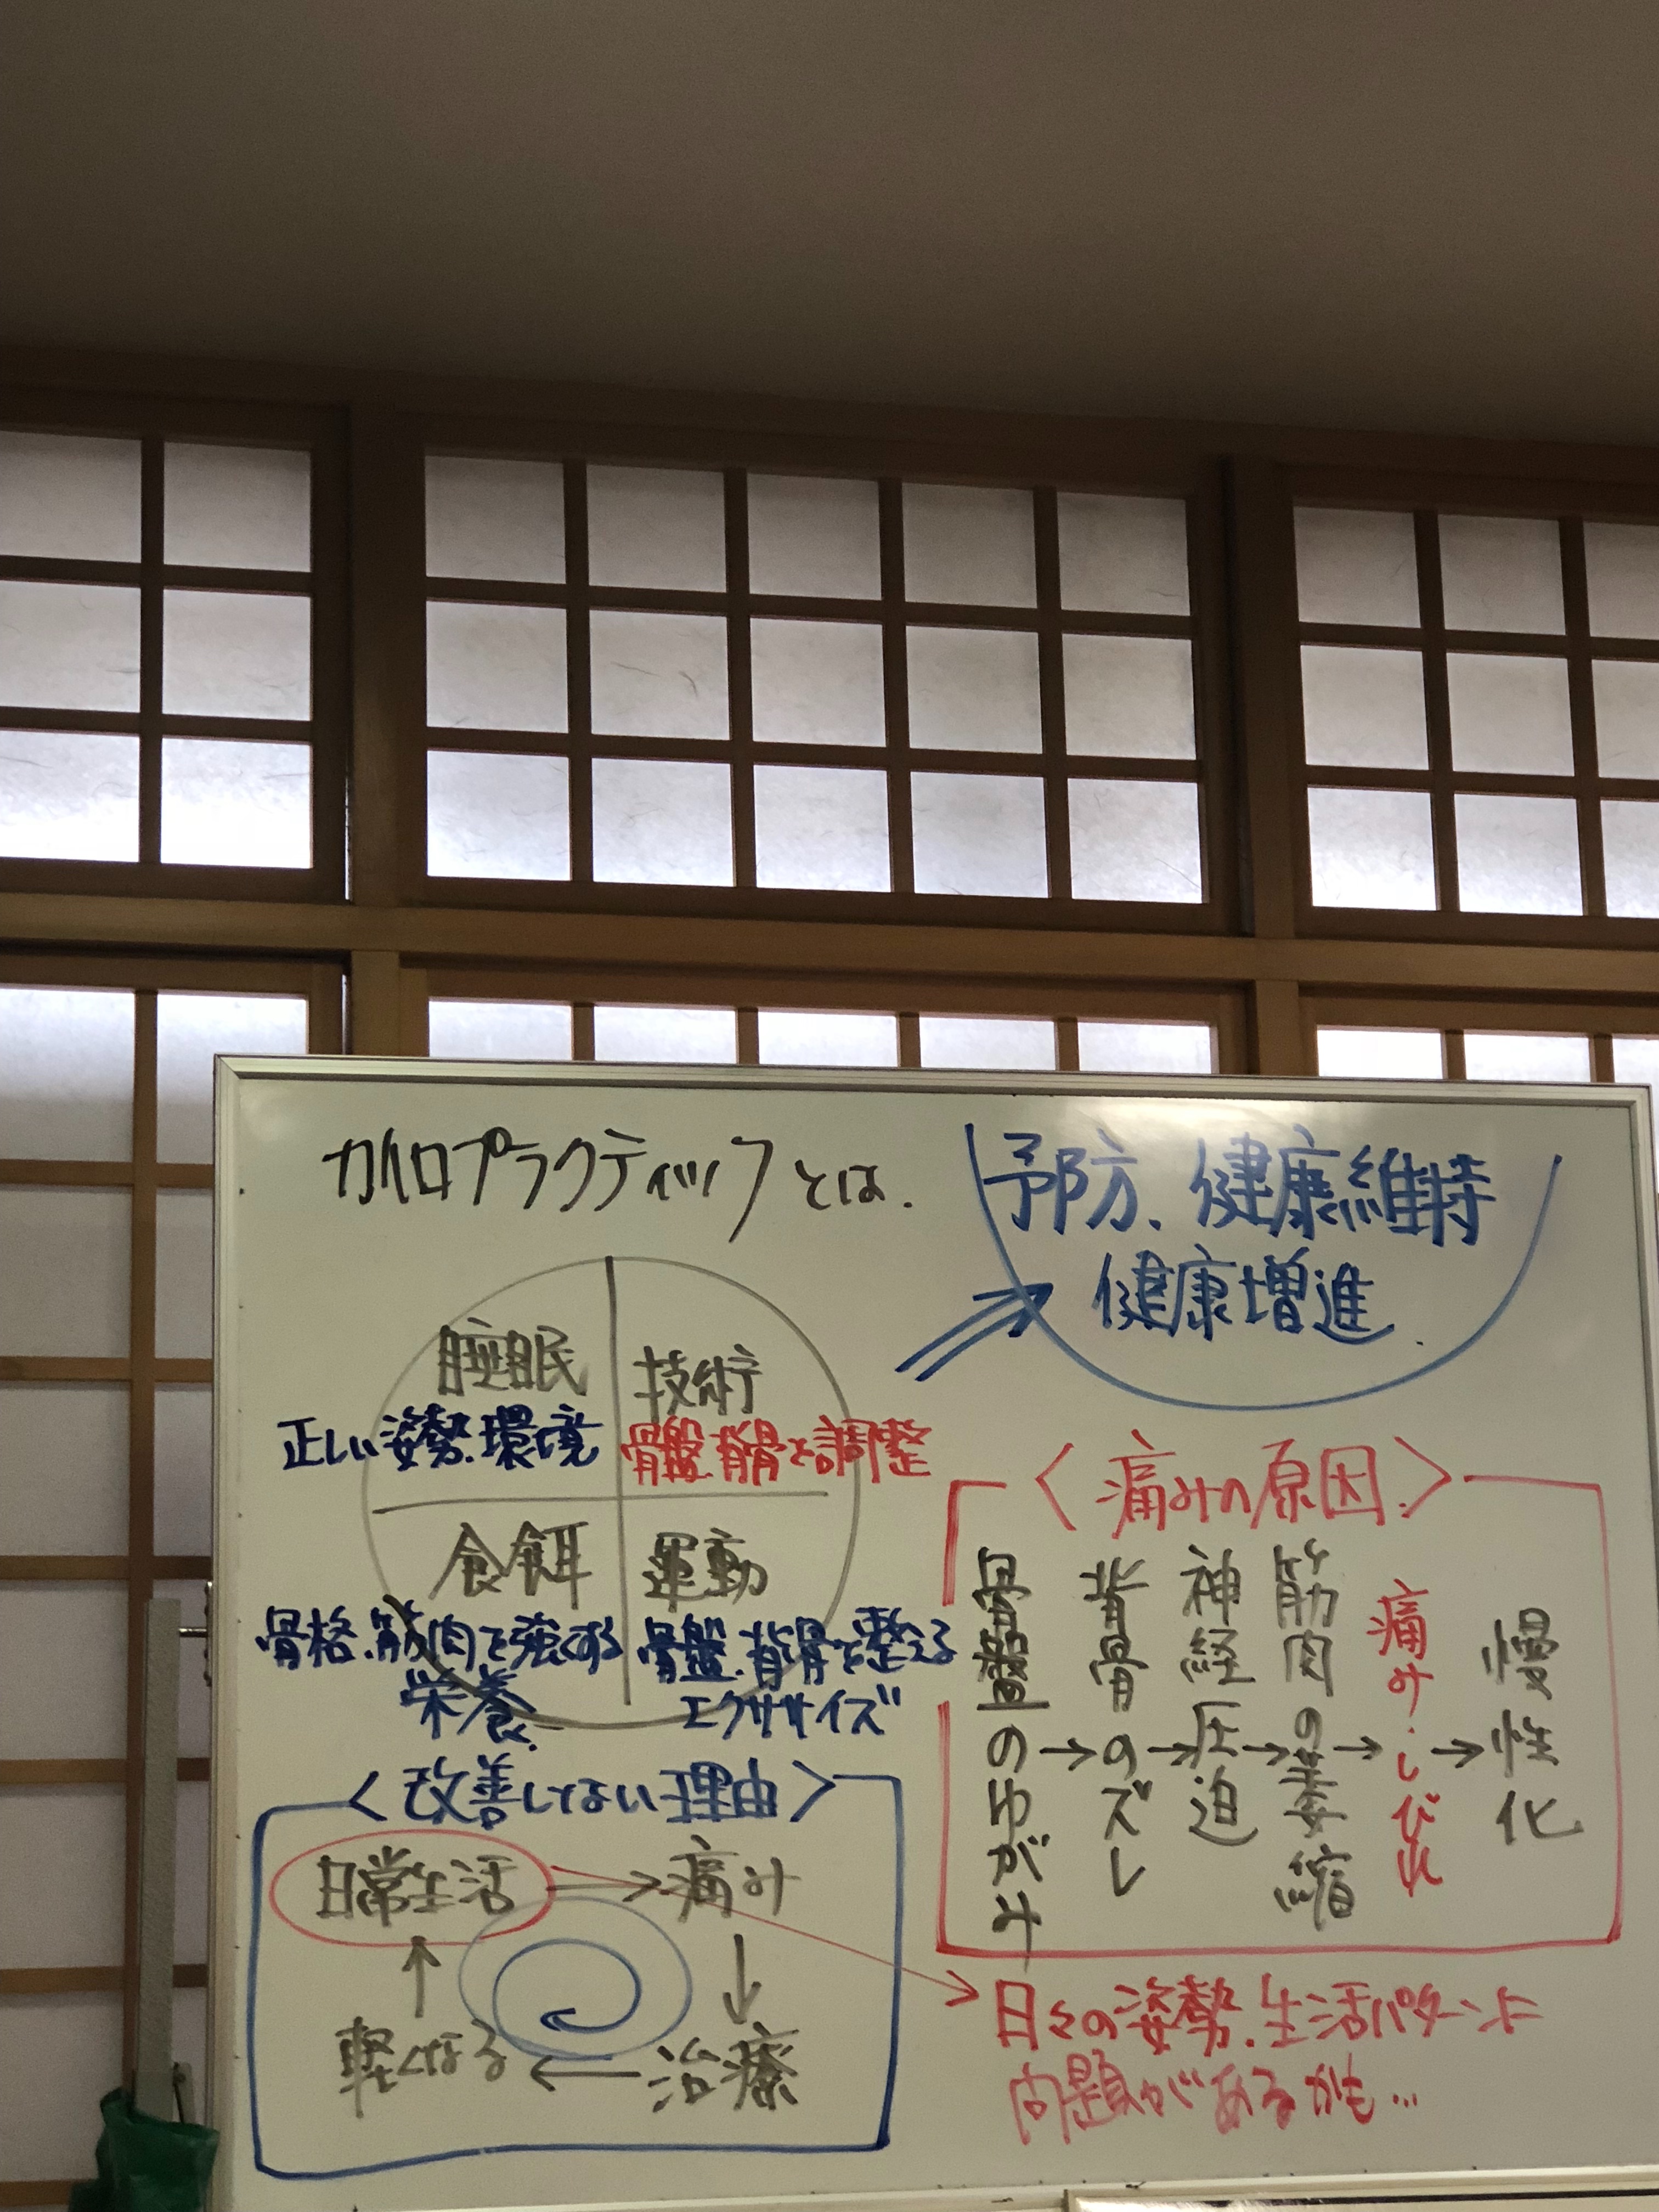 カイロプラクティックとは.
予防、健康維持
健康増進.
睡眠
正しい姿勢.環境
技術
骨盤.背骨を調整
食餌
骨格.筋肉を強くする
栄養.
運動
骨盤.背骨を整える
エクササイズ
〈痛みの原因.〉
骨盤のゆがみ
→背骨のズレ
→神経圧迫
→筋肉の萎縮
→痛み・しびれ
→慢性化
〈改善しない理由〉
日常生活→痛み
↑ ↓
軽くなる←治療
日々の姿勢.生活パターンに
問題があるかも…